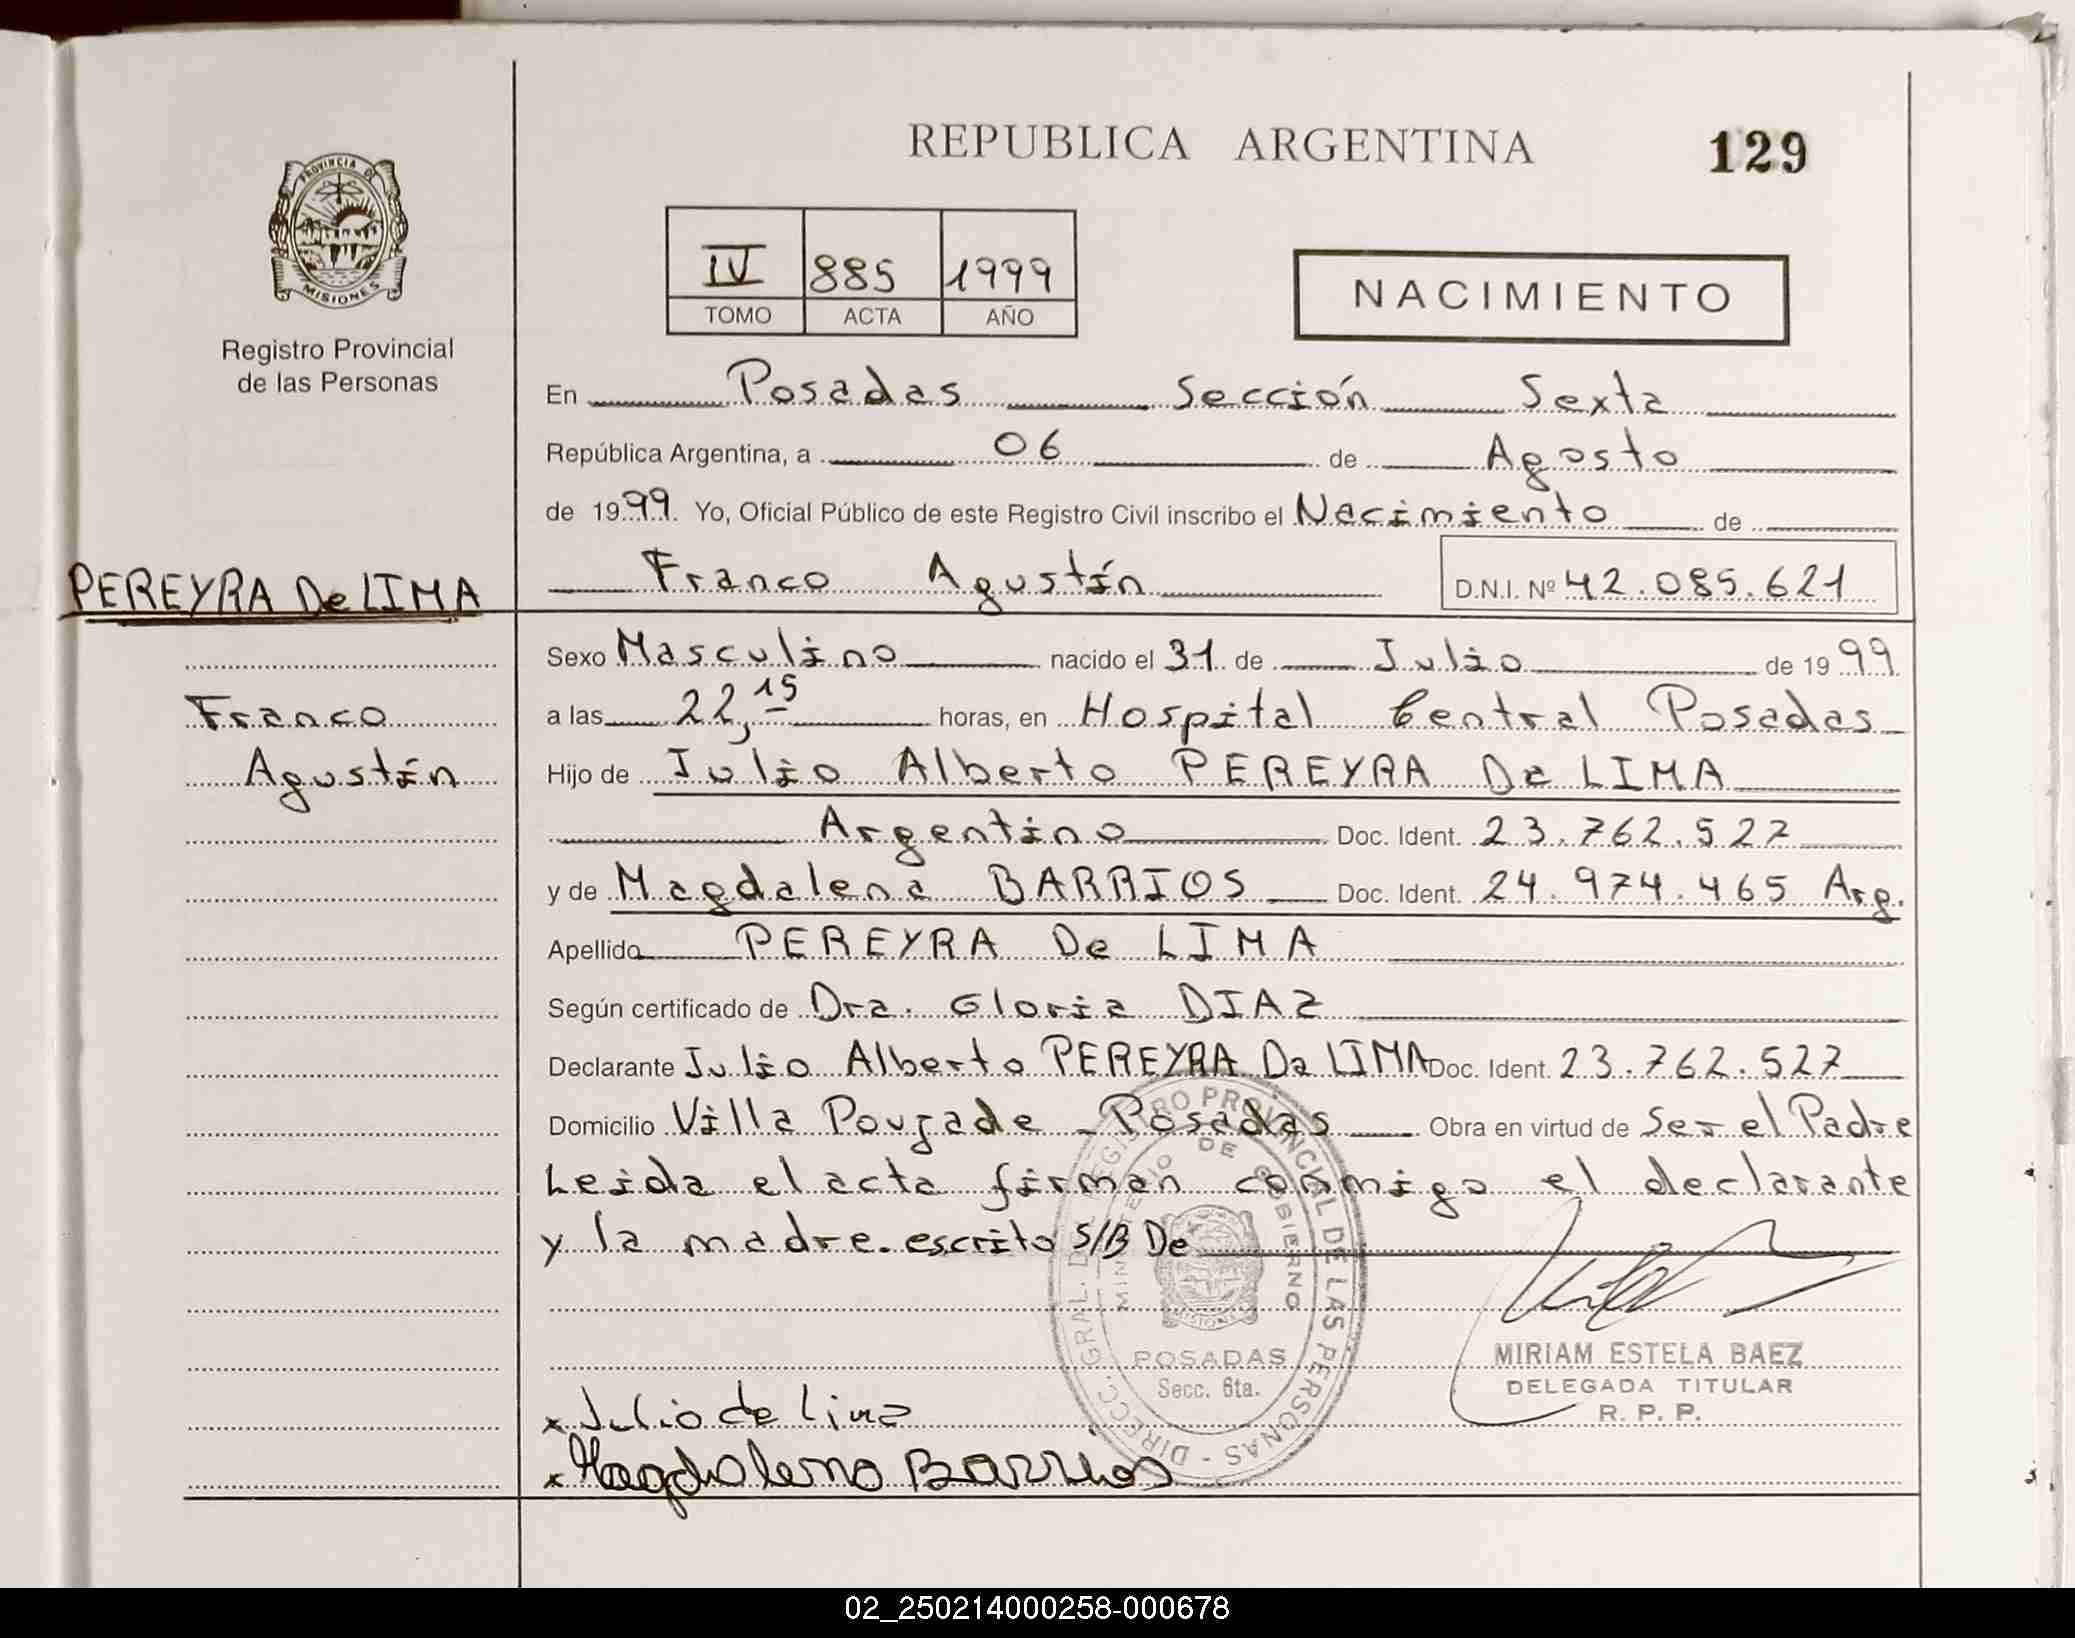 REPUBLICA ARGENTINA
129
PROVINCIA DE
MISIONES
Registro Provincial
de las Personas
IV 885 1999
TOMO ACTA AÑO
NACIMIENTO
En Posadas Sección Sexta
República Argentina, a 06 de Agosto
de 1999 Yo, Oficial Público de este Registro Civil inscribo el Nacimiento de
Franco Agustín D.N.I. Nº 42.085.621
PEREYRA De LIMA
Franco
Agustín
Sexo Masculino nacido el 31 de Julio de 1999
a las 22,15 horas, en Hospital Central Posadas
Hijo de Julio Alberto PEREYRA De LIMA
Argentino Doc. Ident. 23.762.527
y de Magdalena BARRIOS Doc. Ident. 24.974.465 Arg.
Apellido PEREYRA De LIMA
Según certificado de Dra. Gloria DIAZ
Declarante Julio Alberto PEREYRA De LIMA Doc. Ident. 23.762.527
Domicilio Villa Poujade - Posadas Obra en virtud de Ser el Padre
Leida el acta firman conmigo el declarante
y la madre. escrito S/B De
DIRECC. GRAL. DE REGISTRO PROVINCIAL DE LAS PERSONAS -
MINISTERIO DE GOBIERNO
MISIONES
POSADAS
Secc. 6ta.
MIRIAM ESTELA BAEZ
DELEGADA TITULAR
R. P. P.
x Julio de Lima
x Magdalena Barrios
02_250214000258-000678